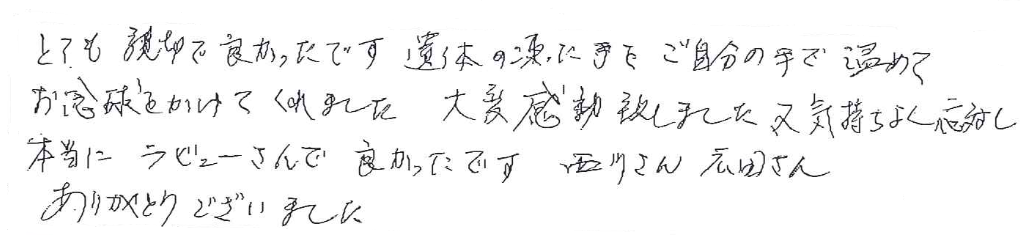 とても親切で良かったです 遺体の凍った手を ご自分の手で温めて
お念珠をかけてくれました 大変感動致しました 又気持ちよく応対し
本当に ラビューさんで 良かったです 西川さん 広田さん
ありがとうございました